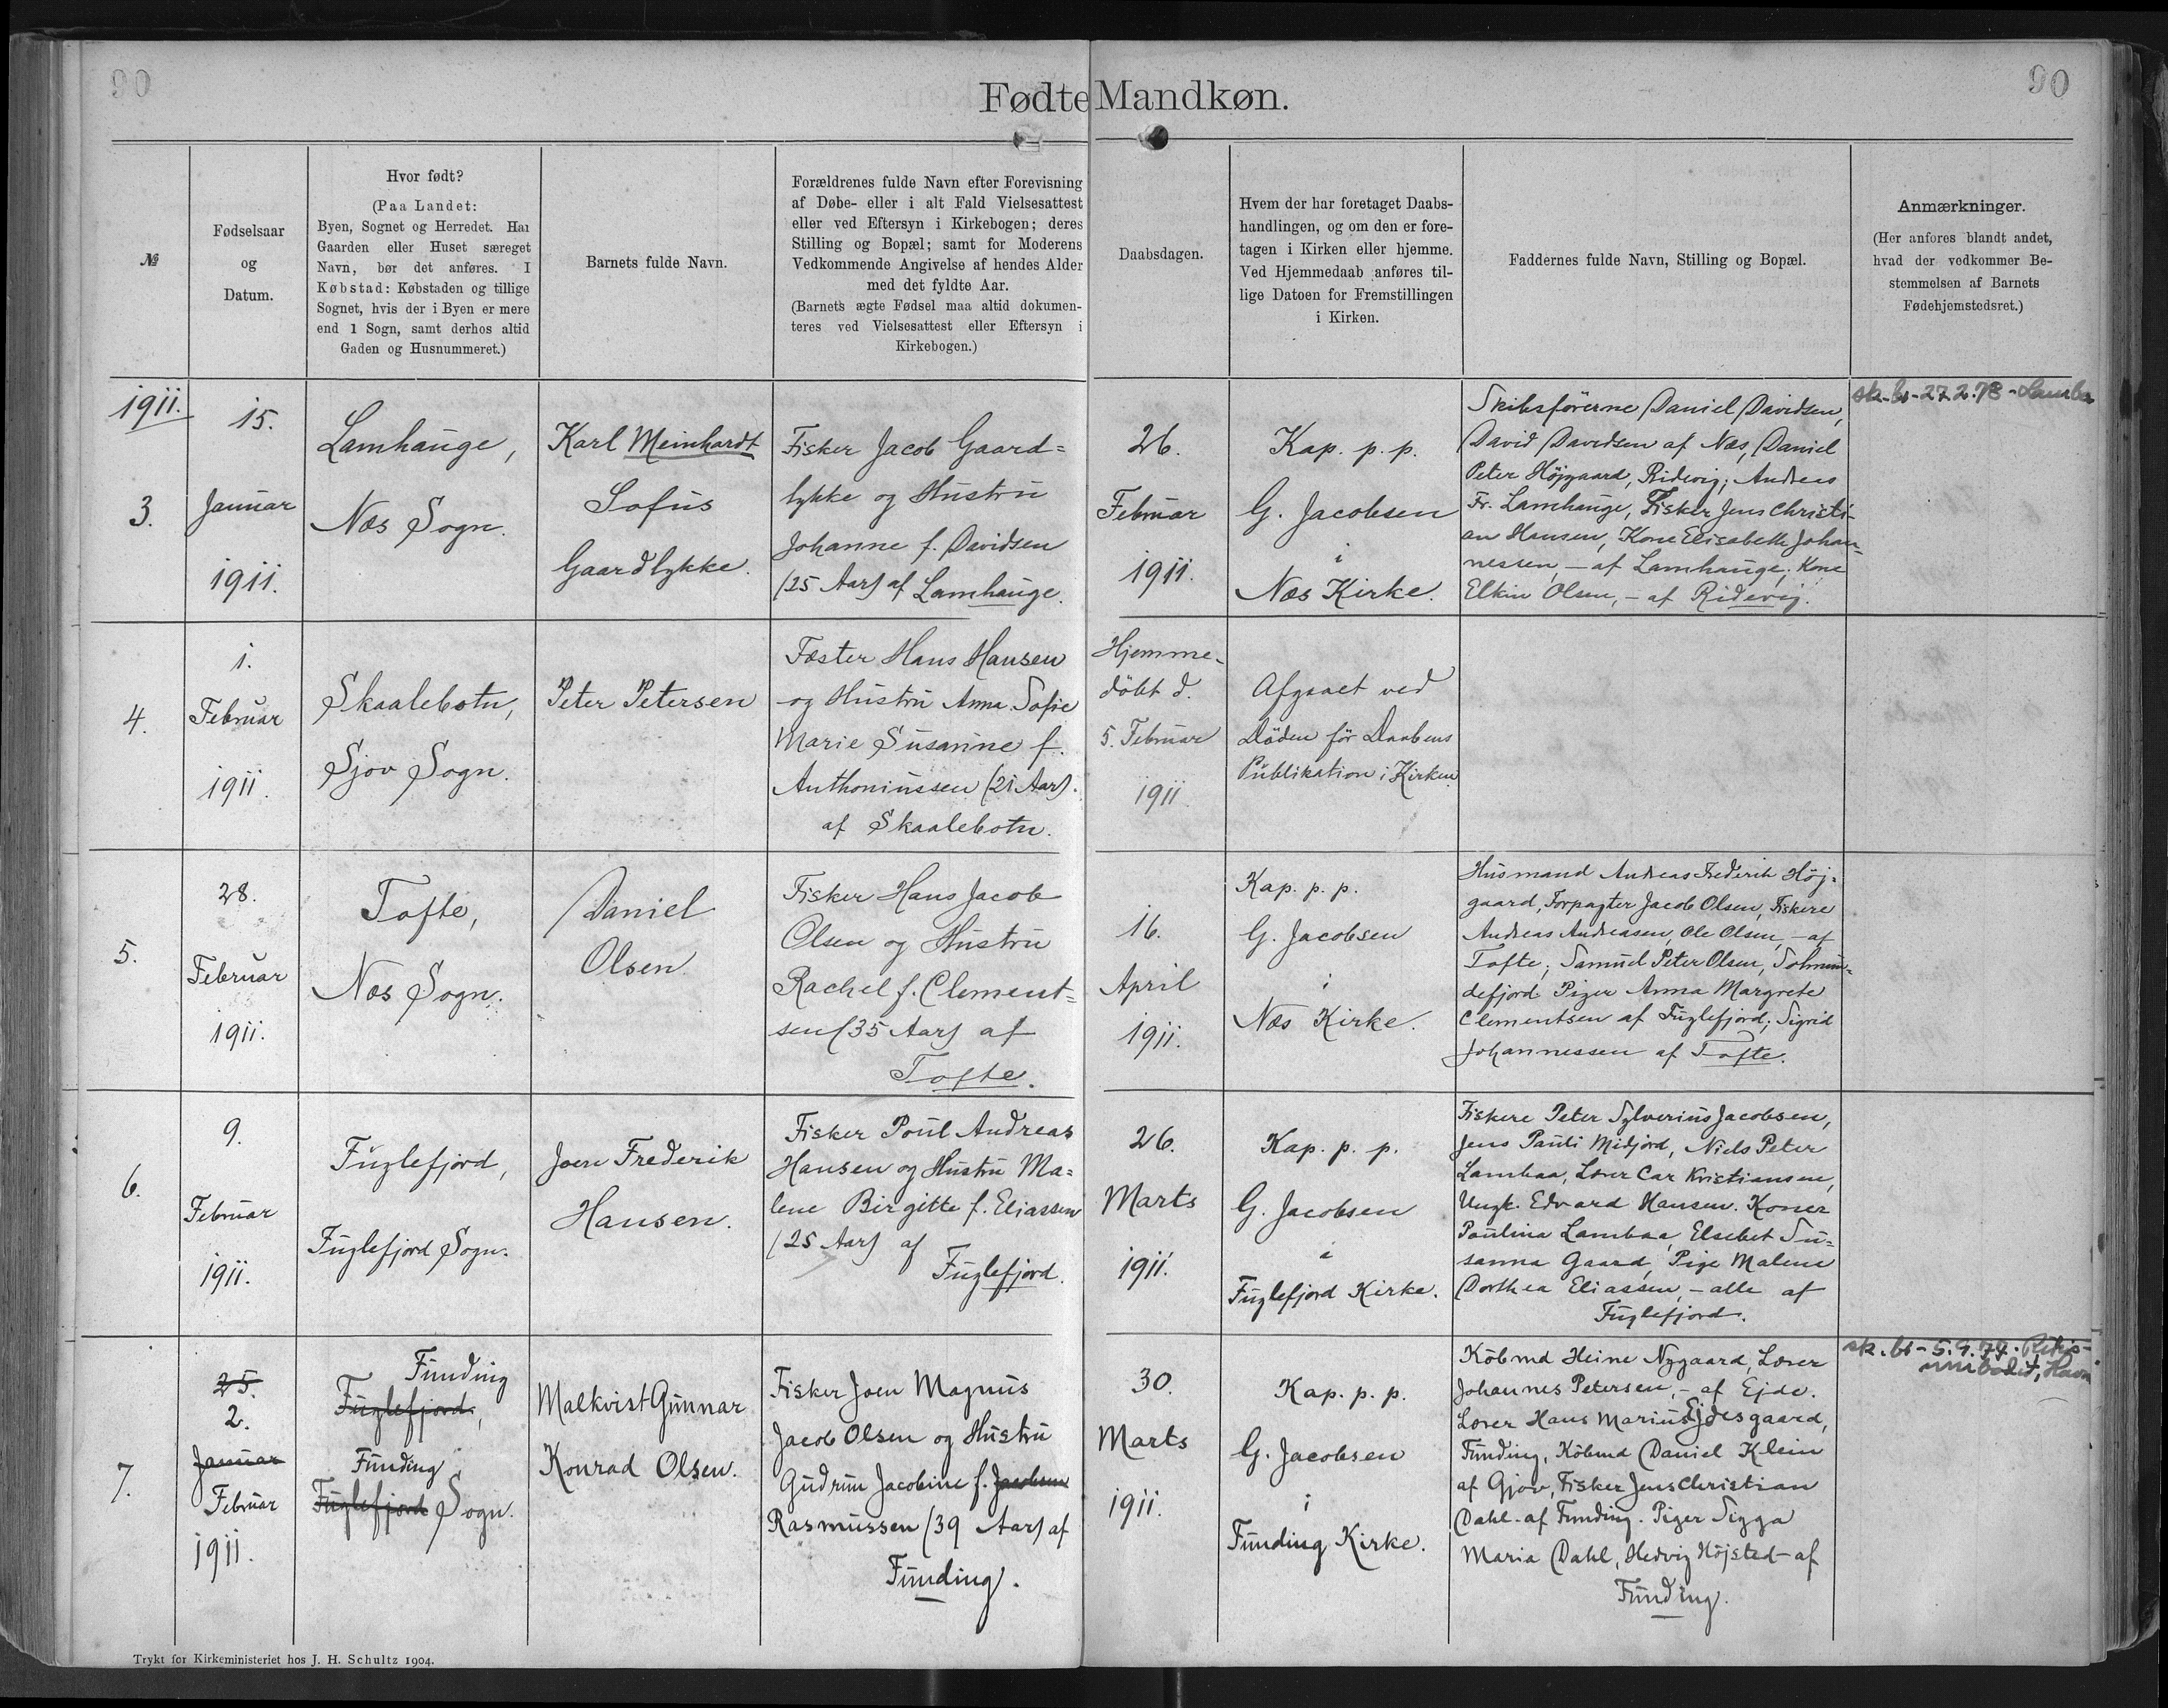 90
90
Fødte Mandkøn.
№
Fødselsaar
og
Datum.
Hvor født?
(Paa Landet:
Byen, Sognet og Herredet. Har
Gaarden eller Huset særeget
Navn, bør det anføres. I
Købstad: Købstaden og tillige
Sognet, hvis der i Byen er mere
end 1 Sogn, samt derhos altid
Gaden og Husnummeret.)
Barnets fulde Navn.
Forældrenes fulde Navn efter Forevisning
af Døbe- eller i alt Fald Vielsesattest
eller ved Eftersyn i Kirkebogen; deres
Stilling og Bopæl; samt for Moderens
Vedkommende Angivelse af hendes Alder
med det fyldte Aar.
(Barnets ægte Fødsel maa altid dokumen-
teres ved Vielsesattest eller Eftersyn i
Kirkebogen.)
Daabsdagen.
Hvem der har foretaget Daabs-
handlingen, og om den er fore-
tagen i Kirken eller hjemme.
Ved Hjemmedaab anføres til-
lige Datoen for Fremstillingen
i Kirken.
Faddernes fulde Navn, Stilling og Bopæl.
Anmærkninger.
(Her anføres blandt andet,
hvad der vedkommer Be-
stemmelsen af Barnets
Fødehjemstedsret.)
1911.
3.
15.
Januar
1911.
Lamhauge,
Næs Sogn.
Karl Meinhardt
Sofus
Gaardlykke.
Fisker Jacob Gaard=
lykke og Hustru
Johanne f. Davidsen
(25 Aar) af Lamhauge.
26.
Februar
1911.
Kap. p. p.
G. Jacobsen
i
Næs Kirke.
Skibsförerne Daniel Davidsen,
David Davidsen af Næs, Daniel
Peter Höjgaard, Ridevig; Andreas
Fr. Lamhauge, Fisker Jens Christi-
an Hansen, Kone Elisabeth Johan-
nessen, - af Lamhauge; Kone
Elkin Olsen, - af Ridevig.
sk. br - 27.2.78 - Lamba
4.
1.
Februar
1911.
Skaalebotn,
Sjov Sogn.
Peter Petersen
Fæster Hans Hansen
og Hustru Anna Sofie
Marie Susanne f.
Anthoniussen (21 Aar).
af Skaalebotn.
Hjemme-
döbt d.
5. Februar
1911.
Afgaaet ved
Döden för Daabens
Publikation i Kirken.
5.
28.
Februar
1911.
Tofte,
Næs Sogn.
Daniel
Olsen.
Fisker Hans Jacob
Olsen og Hustru
Rachel f. Clement=
sen (35 Aar) af
Tofte.
16.
April
1911.
Kap. p. p.
G. Jacobsen
i
Næs Kirke.
Husmand Andreas Frederik Höj=
gaard, Forpagter Jacob Olsen, Fiskere
Andreas Andreasen, Ole Olsen, - af
Tofte; Samuel Peter Olsen, Solmun=
defjord. Piger Anna Margrete
Clementsen af Fuglefjord; Sigrid
Johannessen af Tofte.
6.
9.
Februar
1911.
Fuglefjord,
Fuglefjord Sogn.
Joen Frederik
Hansen.
Fisker Poul Andreas
Hansen og Hustru Ma=
lene Birgitte f. Eliassen
(25 Aar) af
Fuglefjord.
26.
Marts
1911.
Kap. p. p.
G. Jacobsen
i
Fuglefjord Kirke.
Fiskere Peter Sylverius Jacobsen,
Jens Pauli Midjord, Niels Peter
Lambaa, Lærer Car Kristiansen,
Ungk. Edvard Hansen. Koner
Paulina Lambaa, Elsebet Su=
sanna Gaard, Pige Malene
Dorthea Eliassen, - alle af
Fuglefjord.
7.
25.
2.
Januar
Februar
1911.
Funding
Fuglefjord,
Funding
Fuglefjord Sogn.
Malkvist Gunnar
Konrad Olsen.
Fisker Joen Magnus
Jacob Olsen og Hustru
Gudrun Jacobine f. Jacobsen
Rasmussen (39 Aar) af
Funding.
30.
Marts
1911.
Kap. p. p.
G. Jacobsen
i
Funding Kirke.
Köbmd Heine Nygaard, Lærer
Johannes Petersen, - af Ejde.
Lærer Hans Marius Ejdesgaard,
Funding, Köbmd Daniel Klein
af Gjov, Fisker Jens Christian
Dahl - af Funding. Piger Sigga
Maria Dahl, Hedvig Höjsted - af
Funding.
sk. br - 5.9.79.
umbodid, Havn
Trykt for Kirkeministeriet hos J. H. Schultz 1904.